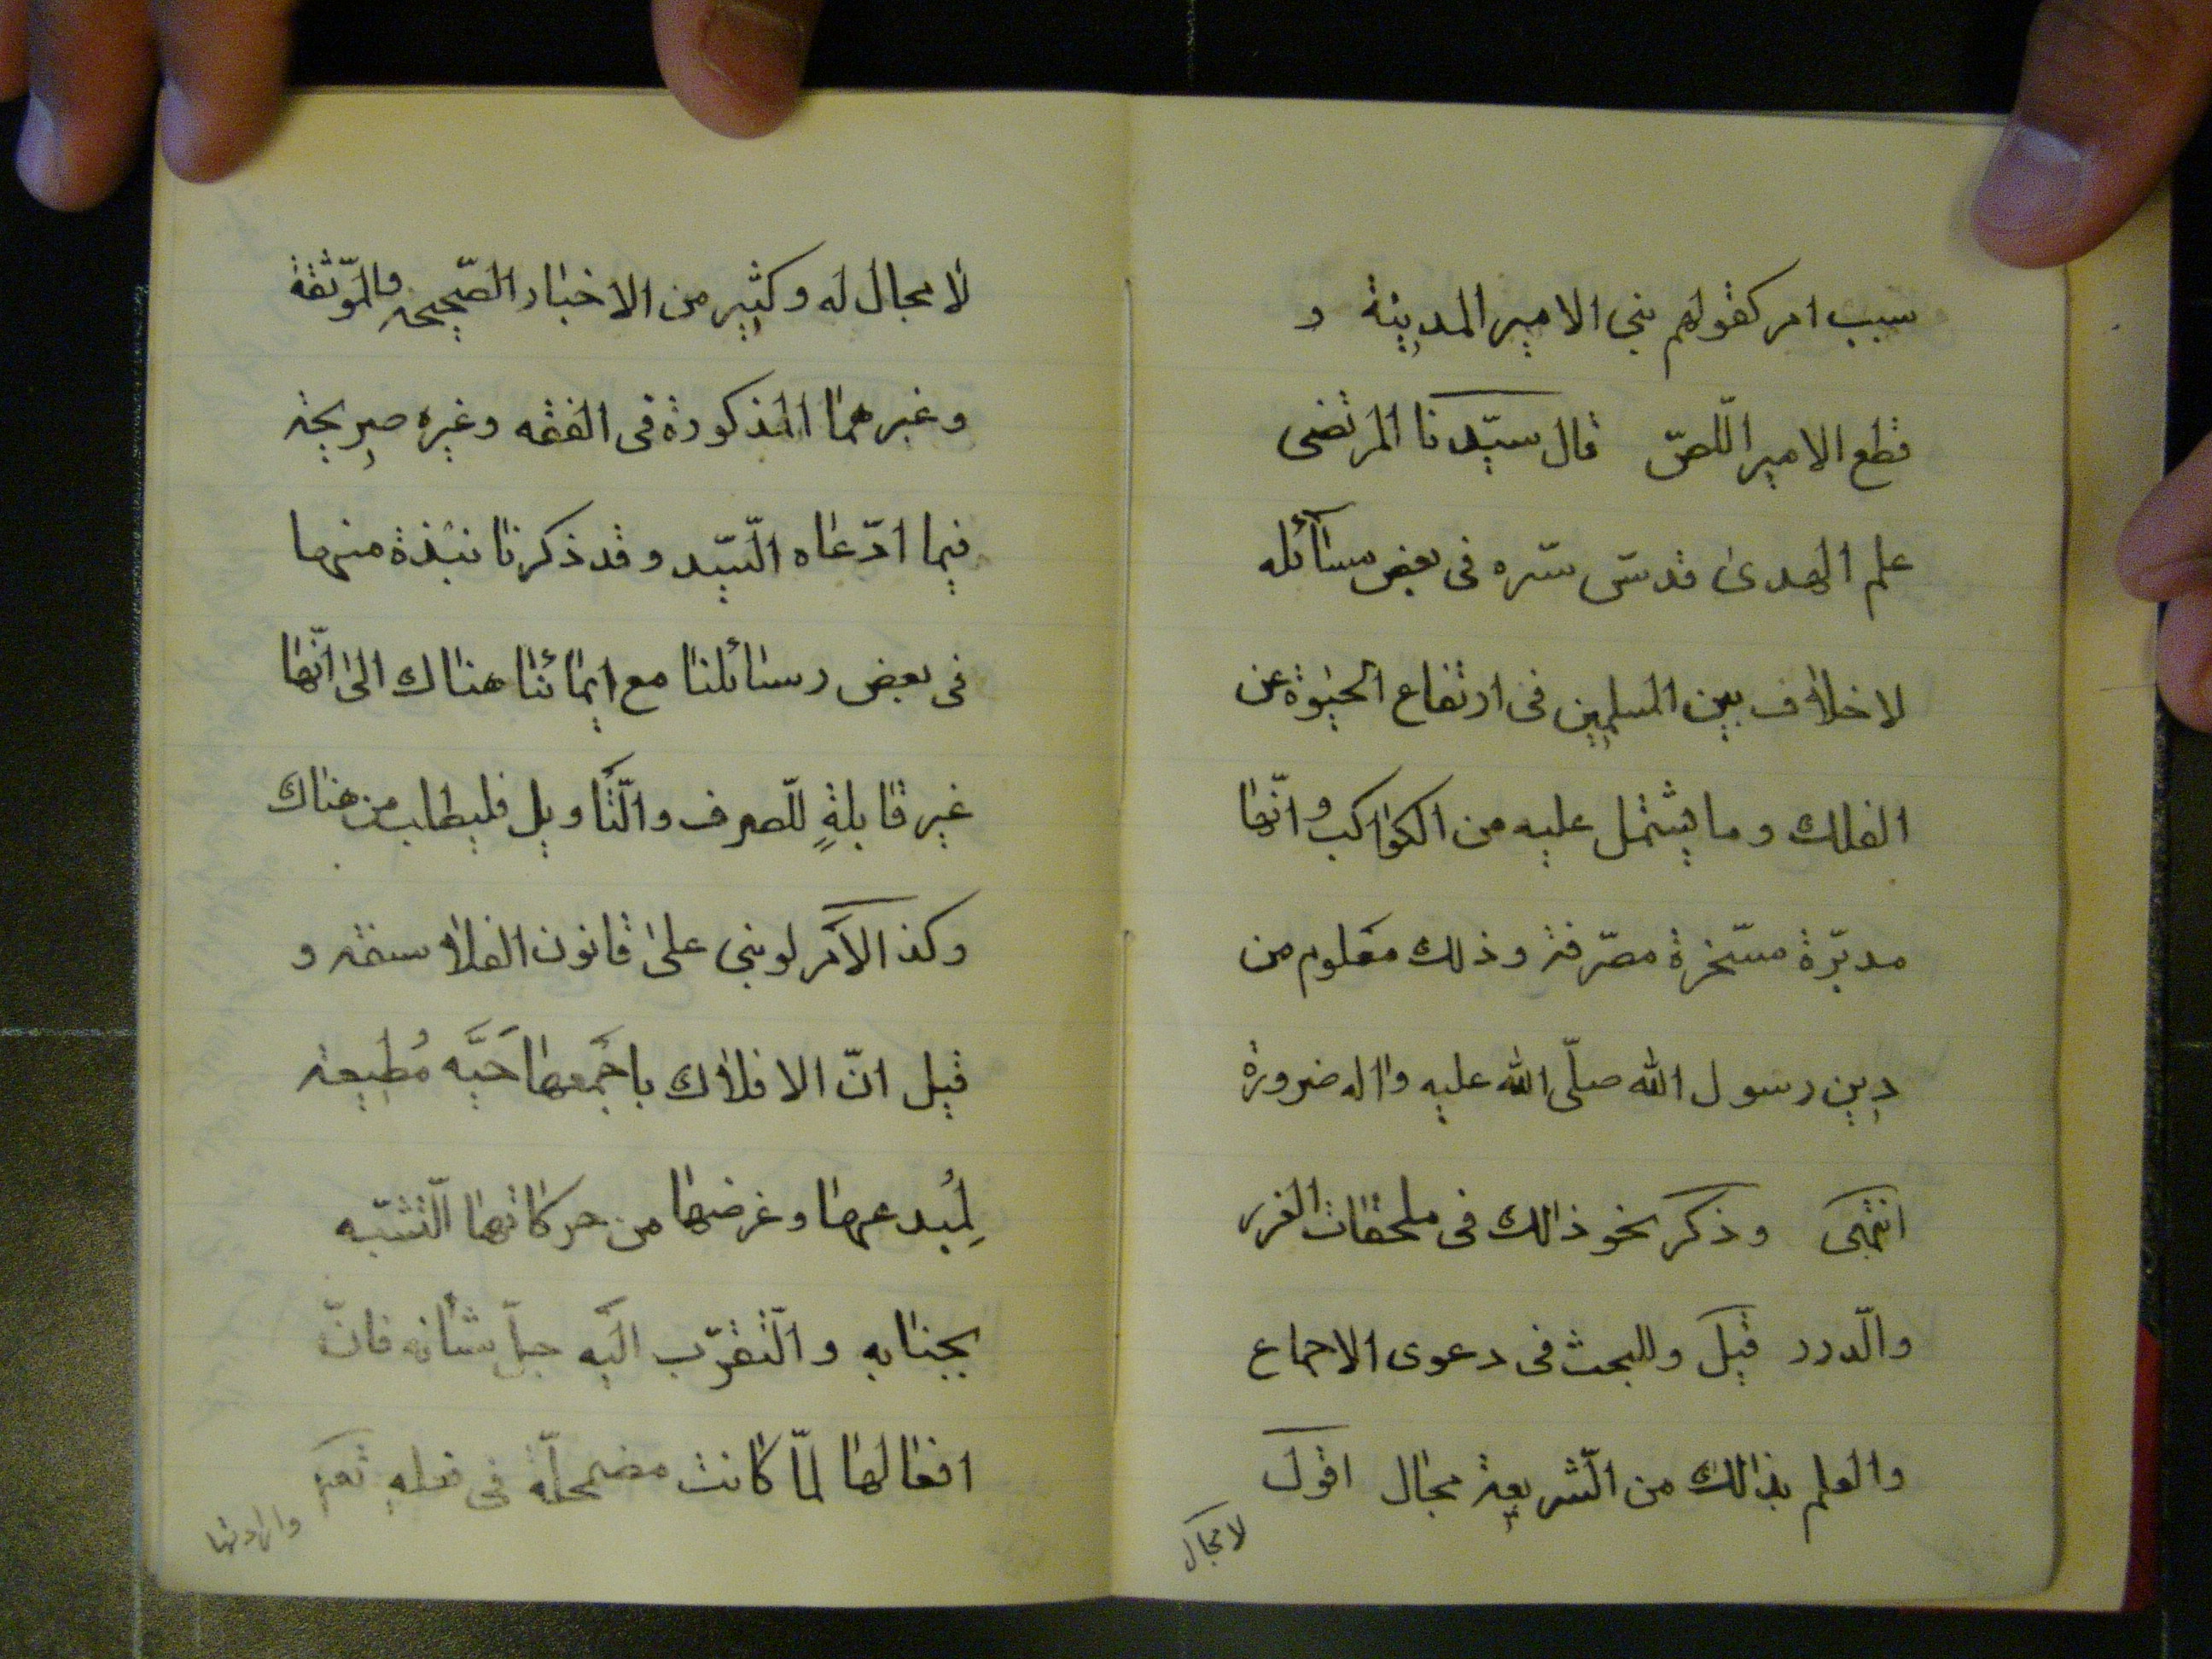 سبب امر كقولهم بنى الامير المدينة و
قطع الامير اللّصّ قال سيّدنا المرتضى
علم الهدى قدس سّره فى بعض مسآئله
لا خلاف بين المسلمين فى ارتفاع الحيوة عن
الفلك وما يشتمل عليه من الكواكب و انّها
مدبّرة مسّخرة مصّرفة وذلك معلوم من
دين رسول الله صلّى الله عليه واله ضرورة
انتهى وذكر نحو ذلك فى ملحقات الغرر
والّدرر قيل وللبحث فى دعوى الاجماع
والعلم بذلك من الّشريعة مجال اقول
لا مجال
لا مجال له و كثير من الاخبار الصّحيحة والموّثقة
وغيرهما المذكورة فى الفقه وغيره صريحة
فيما ادّعاه الّسيّد وقد ذكرنا نبذة منها
فى بعض رسائلنا مع ايمائنا هناك الى انّها
غير قابلةٍ للّصرف والّتأويل فليطلب من هناك
وكذ الأمر لو بنى على قانون الفلاسفة و
قيل انّ الافلاك باجمعها حَيَّه مُطيعة
لِمُبدعها وغرضها من حركاتها الّتشبّه
بجنابه والّتقرّب اليه جلّ شأنه فانّ
افعالها لمّا كانت مضمحلّة فى فعله تعم
وارادتها